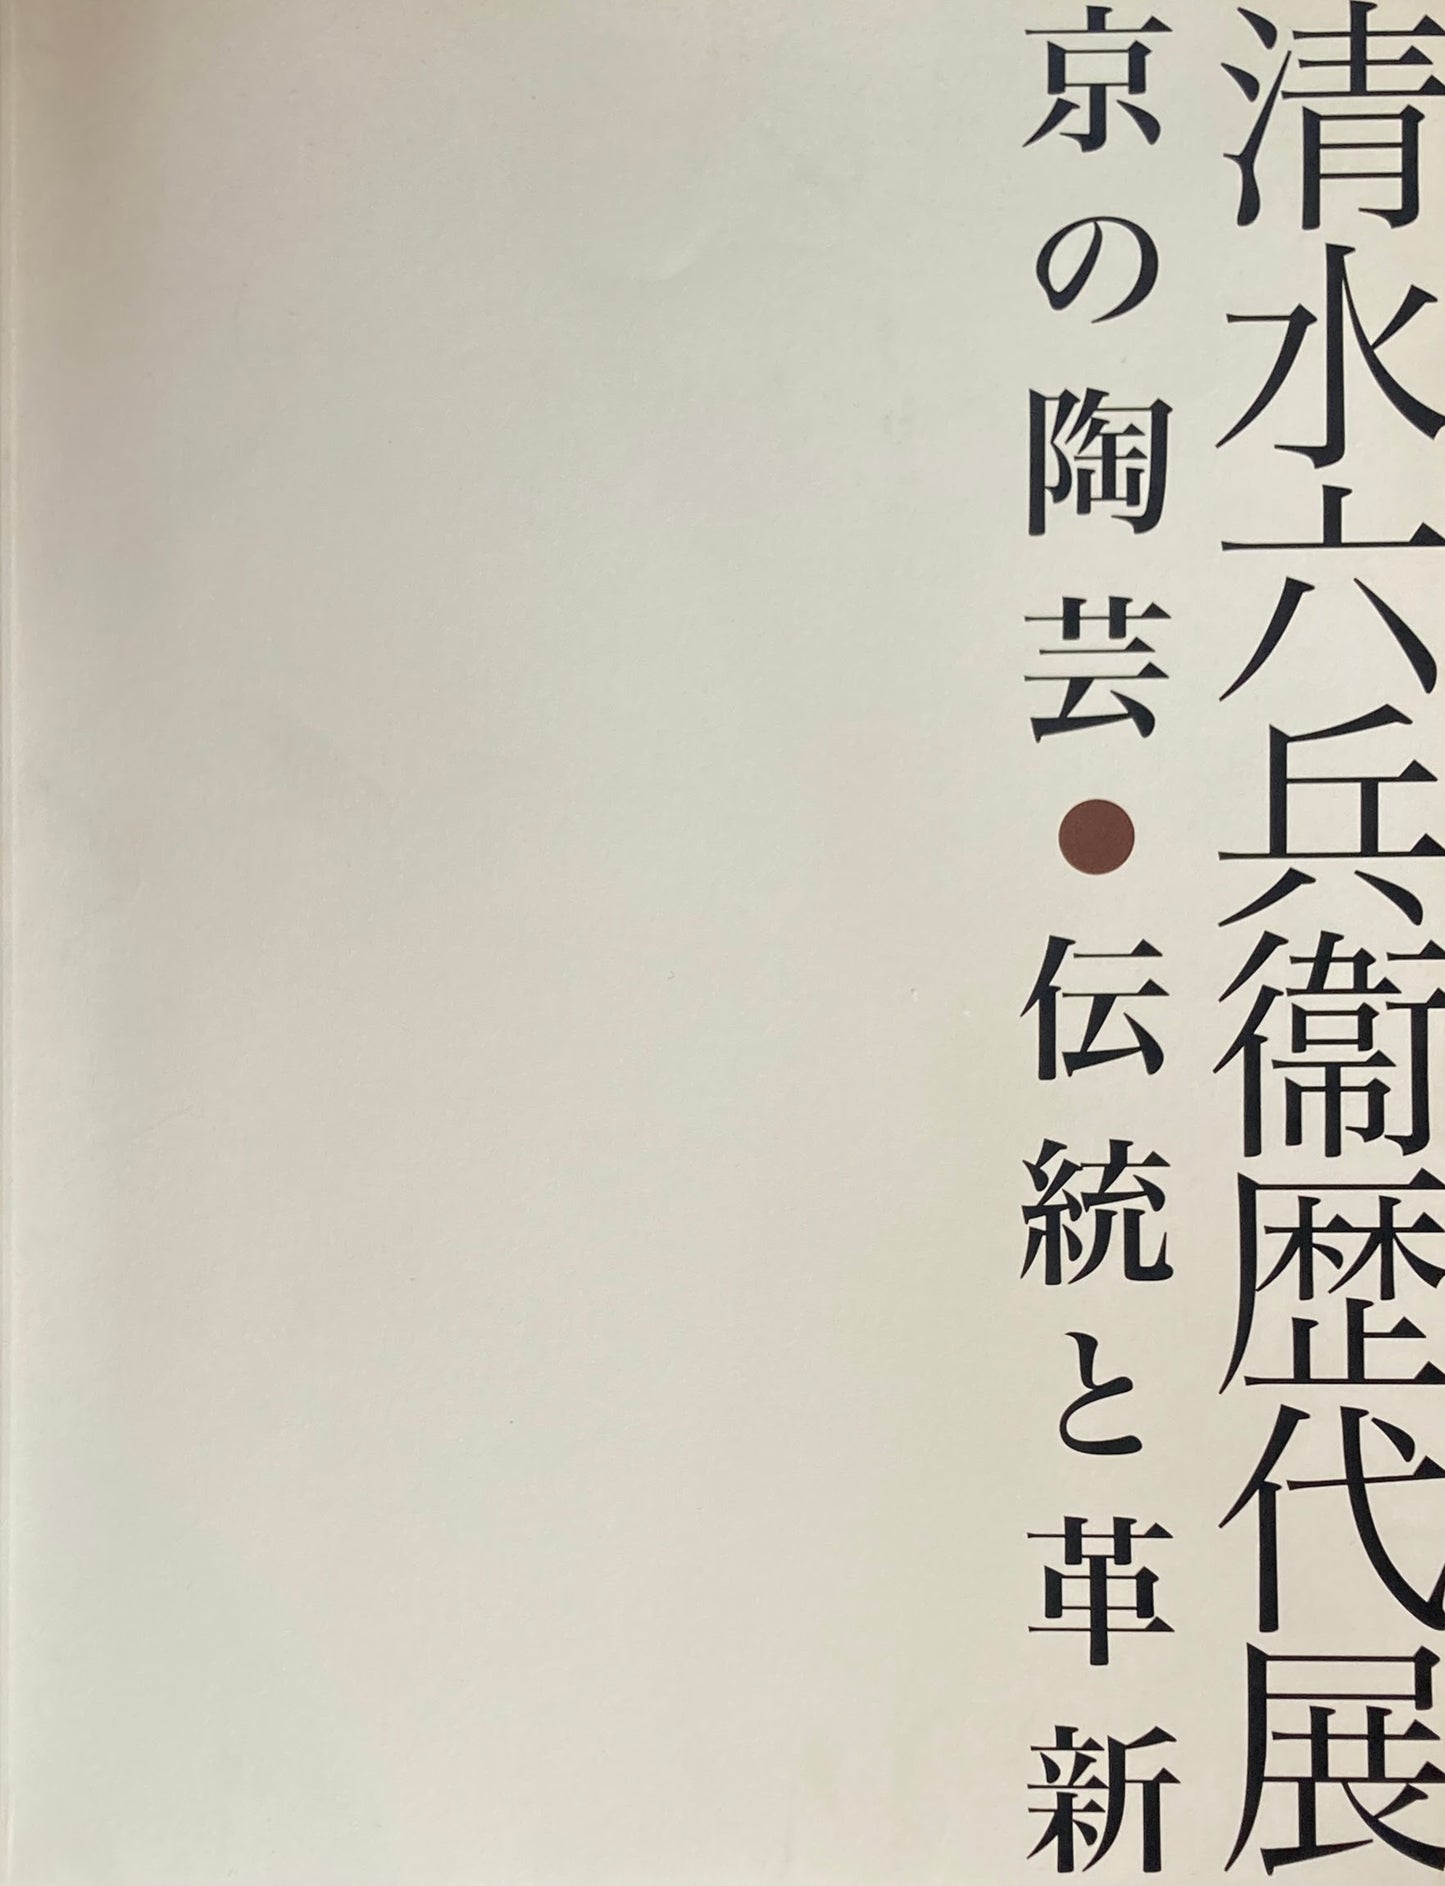 清水六兵衛歴代展
京の陶芸●伝統と革新